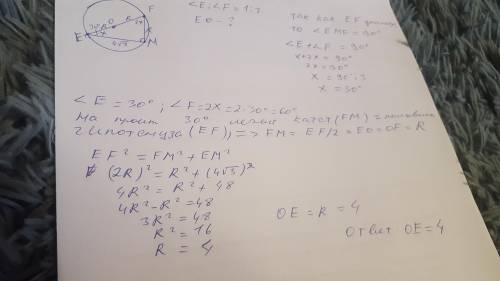 F
∠E:∠F = 1:2
EO - ?
30°
O
R
E
x
2x
R
4√3
M
так как EF
то ∠EMF = 90°
∠E + ∠F = 90°
x + 2x = 90°
3x = 90°
x = 90° : 3
x = 30°
∠E = 30° ; ∠F = 2x = 2·30° = 60°
На против 30° лежит катет (FM) =
гипотенуза (EF), => FM = EF/2 = EO = OF = R
EF² = FM² + EM²
(2R)² = R² + (4√3)²
4R² = R² + 48
4R² - R² = 48
3R² = 48
R² = 16
R = 4
OE = R = 4
Ответ OE = 4